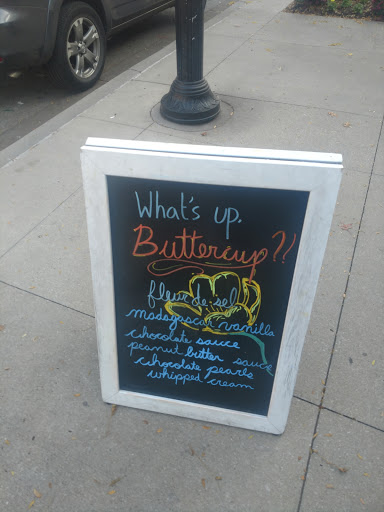 What's up.
Buttercup??
fleur de sel
madagascar vanilla
chocolate sauce
peanut butter sauce
chocolate pearls
whipped cream